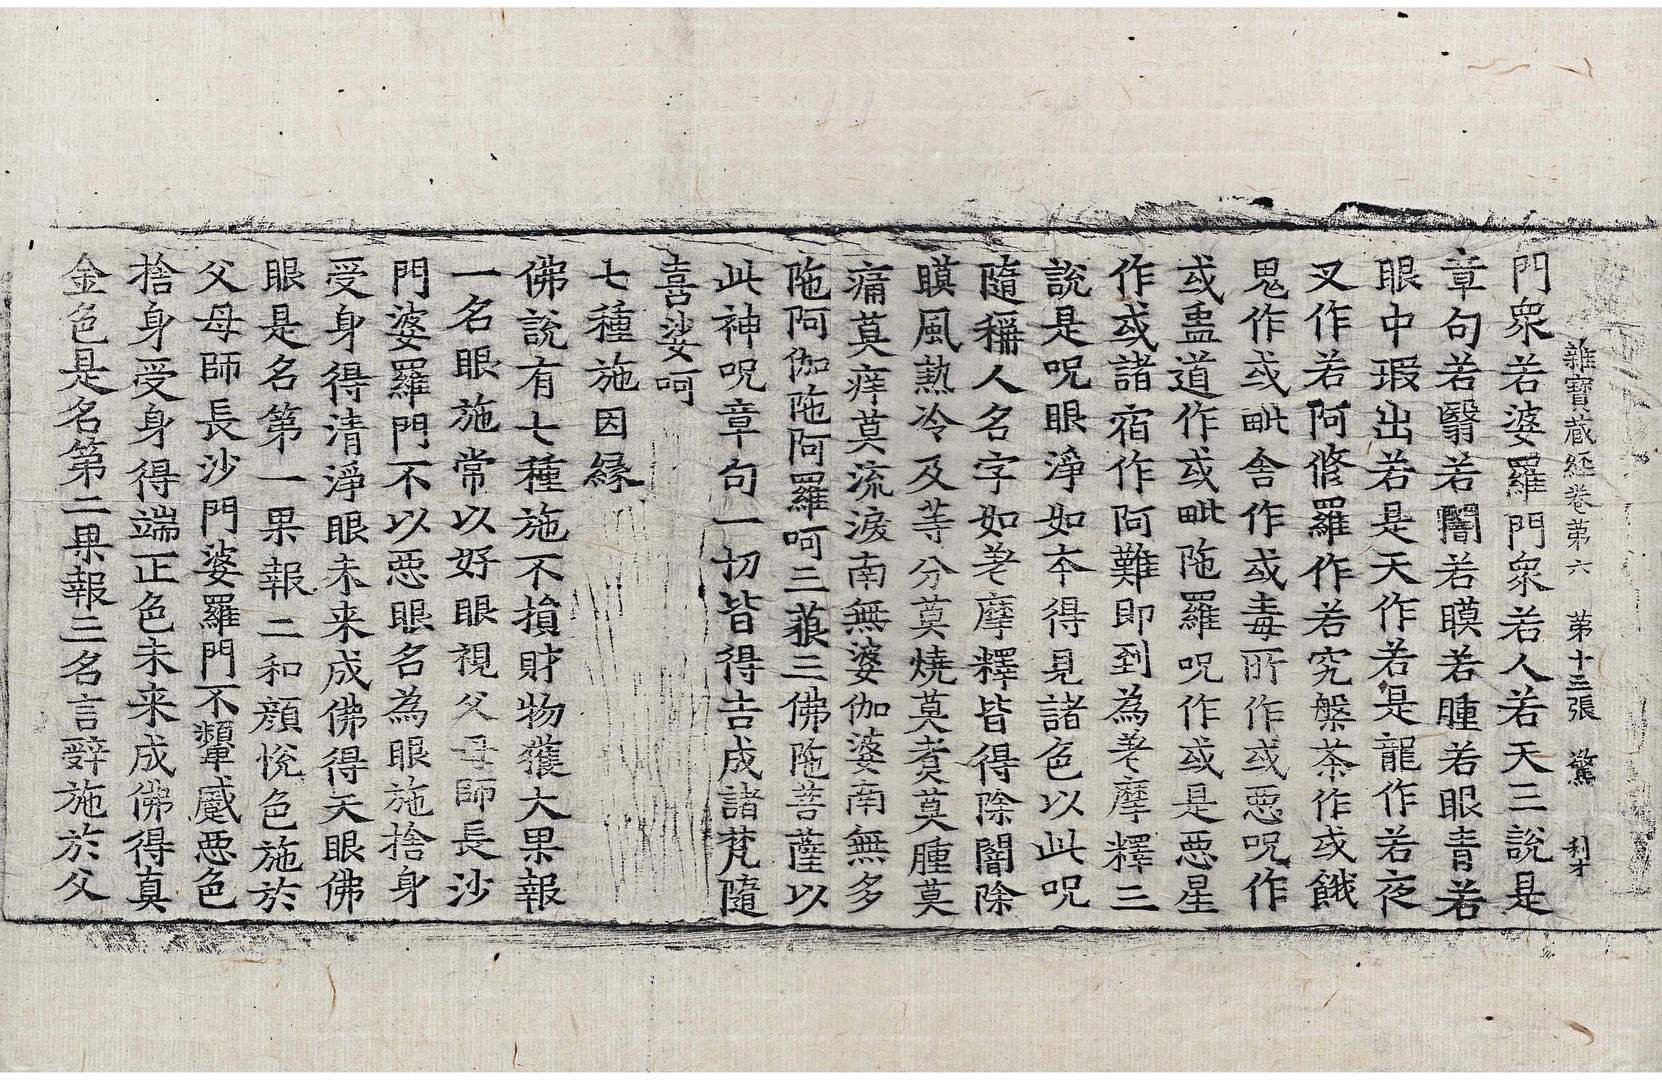 雜寶蔵經卷第六　第十三張　驚　利才
門衆若婆羅門衆若人若天三說是
章句若翳若闇若瞙若腫若眼青若
眼中瑕出若是天作若是龍作若夜
叉作若阿脩羅作若究槃茶作或餓
鬼作或毗舍作或毒所作或惡呪作
或蠱道作或毗陁羅呪作或是惡星
作或諸宿作阿難即到為差摩釋三
說是呪眼淨如本得見諸色以此呪
隨稱人名字如差摩釋皆得除闇除
瞙風熱冷及等分莫燒莫煑莫腫莫
痛莫痒莫流淚南無婆伽婆南無多
陁阿伽陁阿羅呵三藐三佛陁菩薩以
此神呪章句一切皆得吉成諸梵隨
喜娑呵
七種施因緣
佛說有七種施不損財物獲大果報
一名眼施常以好眼視父母師長沙
門婆羅門不以惡眼名為眼施捨身
受身得清淨眼未来成佛得天眼佛
眼是名第一果報二和顔悅色施於
父母師長沙門婆羅門不顰蹙惡色
捨身受身得端正色未来成佛得真
金色是名第二果報三名言辝施於父